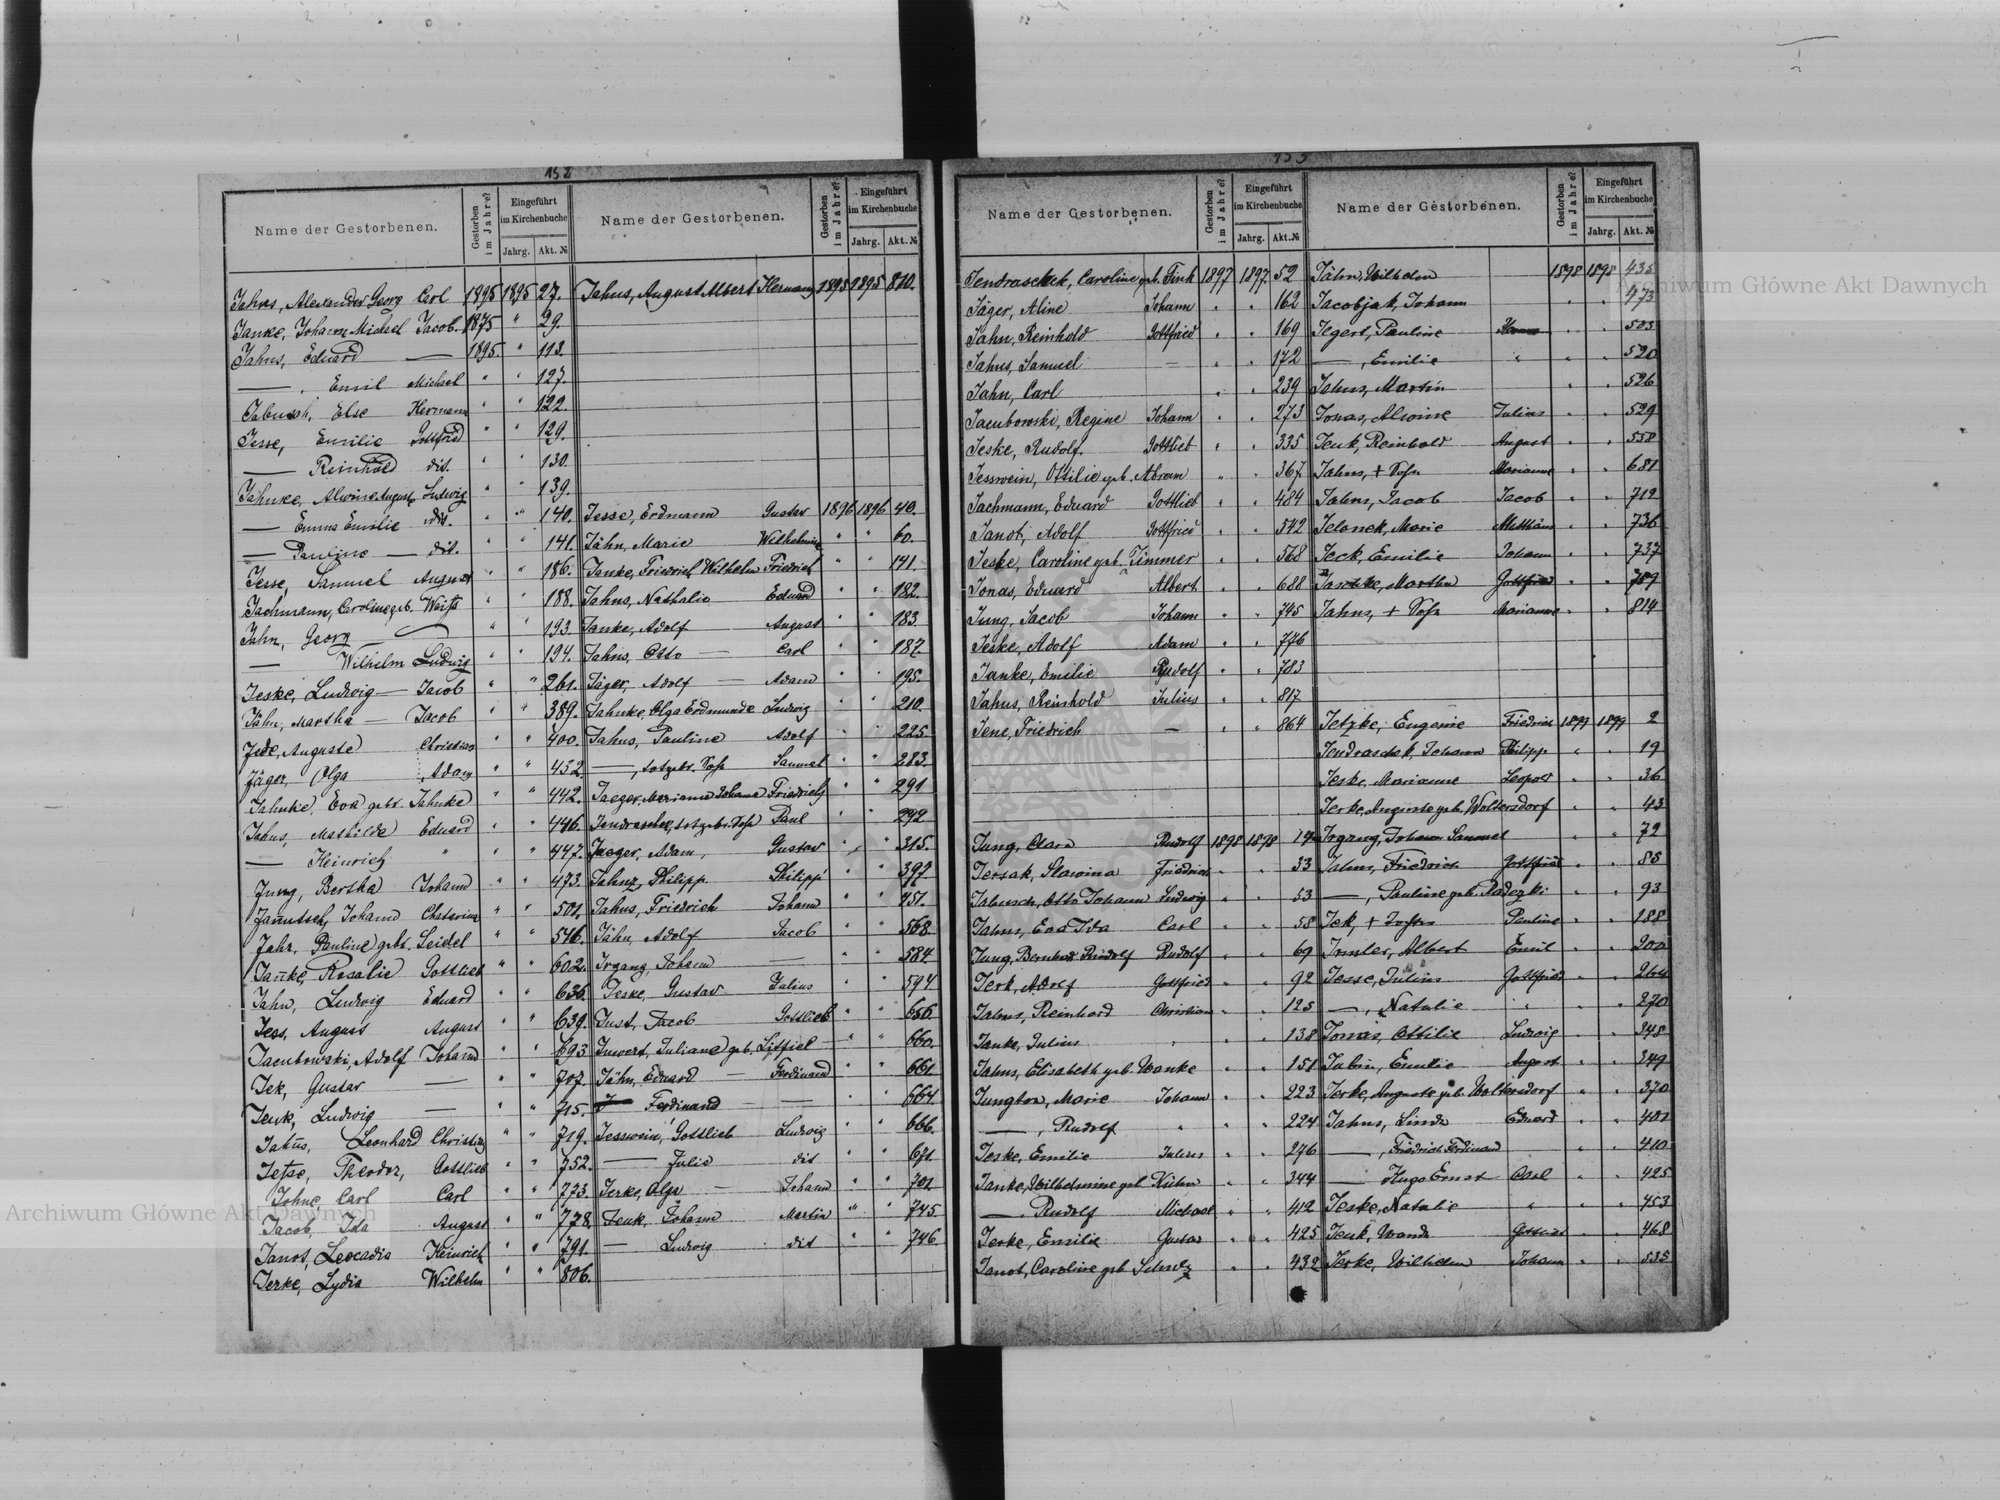 152
Name der Gestorbenen.
Gestorben im Jahre?
Eingeführt im Kirchenbuche
Jahrg. Akt. №
Jahns, Alexander Georg Carl 1895 1895 27.
Janke, Johann Michael Jacob 1875 " 29.
Jahns, Eduard — 1895 " 113.
— , Emil Michael " " 127.
Jabusch, Else Hermann " " 122.
Jesse, Emilie Gottfried " " 129.
— Reinhold dit. " " 130.
Jahnke, Alwine August Ludwig " " 139.
— Emma Emilie dit. " " 140.
— Pauline — dit. " " 141.
Jesse, Samuel August " " 186.
Jachmann, Caroline geb. " " 188.
Jahn, Georg — " " 193.
— Wilhelm Ludwig " " 194.
Jeske, Ludwig — Jacob " " 261.
Jähn, Martha — Jacob " " 389.
Jede, Auguste Christian " " 400.
Jäger, Olga Adam " " 432.
Jahnke, Eva gebr. Jahnke " " 442.
Jahns, Mathilde Eduard " " 446.
— Heinrich " " " 447.
Jung, Bertha Johann " " 473.
Janutsch, Johann " " 501.
Jahr, Pauline gebr. Seidel " " 546.
Janke, Rosalie Gottlieb " " 602.
Jahn, Ludwig Eduard " " 636.
Jess, August August " " 639.
Jacubowski, Adolf Johann " " 693
Jek, Gustav — " " 707
Jeuk, Ludwig — " " 715.
Jahns, Leonhard Christian " " 719.
Theodor, Gottlieb " " 752.
Johne, Carl Carl " " 773.
Jacob, Ida August " " 778.
Janot, Leocadia Heinrich " " 791.
Jerke, Lydia Wilhelm " " 806.
Name der Gestorbenen.
Gestorben im Jahre?
Eingeführt im Kirchenbuche
Jahrg. Akt. №
Jahns, August Albert Hermann 1895 1895 810.
Jesse, Erdmann Gustav 1896 1896 40.
Jähn, Marie Wilhelmine " " 60.
Janke, Friedrich Wilhelm Friedrich " " 141.
Jahns, Nathalie Eduard " " 182.
Janke, Adolf — August " " 183.
Jahns, Otto — Carl " " 187.
Jäger, Adolf — Adam " " 195.
Jahnke, Olga Erdmunde Ludwig " " 210.
Jahns, Pauline Adolf " " 225.
— , totgebr. Samuel " " 283.
Jaeger, Mariane Johanna Friedrich " " 291
Jendraschek, totgebr. Paul " " 292
Jaeger, Adam, Gustav " " 315.
Jahnz, Philipp Philipp " " 392
Jahns, Friedrich Johann " " 451.
Jähn, Adolf Jacob " " 568.
Irgang, Johann — " " 584
Jeske, Gustav Julius " " 594
Just, Jacob Gottlieb " " 656
Juliane geb. " " 660.
Jähn, Eduard — Ferdinand " " 661
Ferdinand — " " 664
Jesswein, Gottlieb Ludwig " " 666.
— Julie dit " " 671.
Jerke, Olga — Johann " " 701
Jeuk, Johann Martin " " 745
— Ludwig dit " " 746.
153
Name der Gestorbenen.
Gestorben im Jahre?
Eingeführt im Kirchenbuche
Jahrg. Akt. №
Jendraschek, Caroline geb. Fink 1897 1897 52
Jäger, Aline Johann " " 162
Jahn, Reinhold Gottfried " " 169
Jahns, Samuel — " " 172
Jahn, Carl " " 239
Jacubowski, Regine Johann " " 273
Jeske, Rudolf Gottlieb " " 335
Jesswein, Ottilie geb. Abram " " 367
Jachmann, Eduard Gottlieb " " 484
Janot, Adolf Gottfried " " 542
Jeske, Caroline geb. Timmer " " 568
Jonas, Eduard Albert " " 688
Jung, Jacob Johann " " 745
Jeske, Adolf Adam " " 776
Janke, Emilie Rudolf " " 783
Jahns, Reinhold Julius " " 817
Jene, Friedrich — " " 864
Jung, Clara Rudolf 1898 1898
Jersak, Friedrich " " 33
Jabusch, Otto Johann Ludwig " " 53
Jahns, Eva Ida Carl " " 58
Jung, Bernhard Rudolf Rudolf " " 69
Jerk, Adolf Gottfried " " 92
Jahns, Reinhard Christian " " 125
Janke, Julius " " " 138
Jahns, Elisabeth geb. Wanke " " 151
Jungton, Marie Johann " " 223
— , Rudolf " " " 224
Jeske, Emilie Julius " " 276
Janke, Wilhelmine geb. Kühn " " 344
— , Rudolf Michael " " 412
Jerke, Emilie Gustav " " 425
Janot, Caroline geb. Schulz " " 432
Name der Gestorbenen.
Gestorben im Jahre?
Eingeführt im Kirchenbuche
Jahrg. Akt. №
Jähn, Wilhelm 1898 1898 435
Jacobjak, Johann " " 473
Jegert, Pauline " " 503
— , Emilie " " " 520
Jahns, Martin " " 526
Jonas, Alwine Julius " " 529
Jeuk, Reinhold August " " 558
Jahns, + Marianne " " 681
Jahns, Jacob Jacob " " 719
Marie Matthäus " " 736
Jeck, Emilie Johann " " 737
Martha Gottfried " " 789
Jahns, + Marianne " " 814
Jetzke, Eugenie Friedrich 1899 1899 2
Jendraschek, Johann Philipp " " 19
Jeske, Marianne Leopold " " 36
Jerke, Auguste geb. Woltersdorf " " 43
Irgang, Johann Samuel " " 72
Jahns, Friedrich Gottfried " " 85
— , Pauline geb. " " 93
Jek, + Pauline " " 188
Albert Emil " " 200
Jesse, Julius Gottfried " " 264
— , Natalie " " " 270
Jonas, Ottilie Ludwig " " 348
Emilie August " " 349
Jerke, Auguste geb. Woltersdorf " " 370
Jahns, Linda Eduard " " 401
— , Friedrich Ferdinand " " 410
— Hugo Ernst Carl " " 425
Jeske, Natalie " " " 453
Jeuk, Wanda Gottlieb " " 468
Jerke, Wilhelm Johann " " 535
Archiwum Główne Akt Dawnych
Archiwum Główne Akt Dawnych